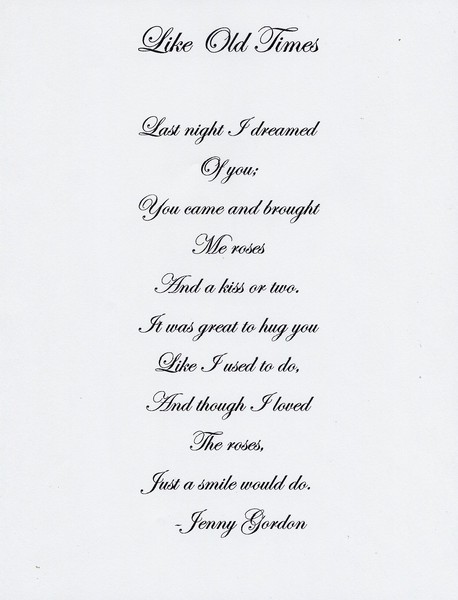 Like Old Times
Last night I dreamed
Of you;
You came and brought
Me roses
And a kiss or two.
It was great to hug you
Like I used to do,
And though I loved
The roses,
Just a smile would do.
-Jenny Gordon